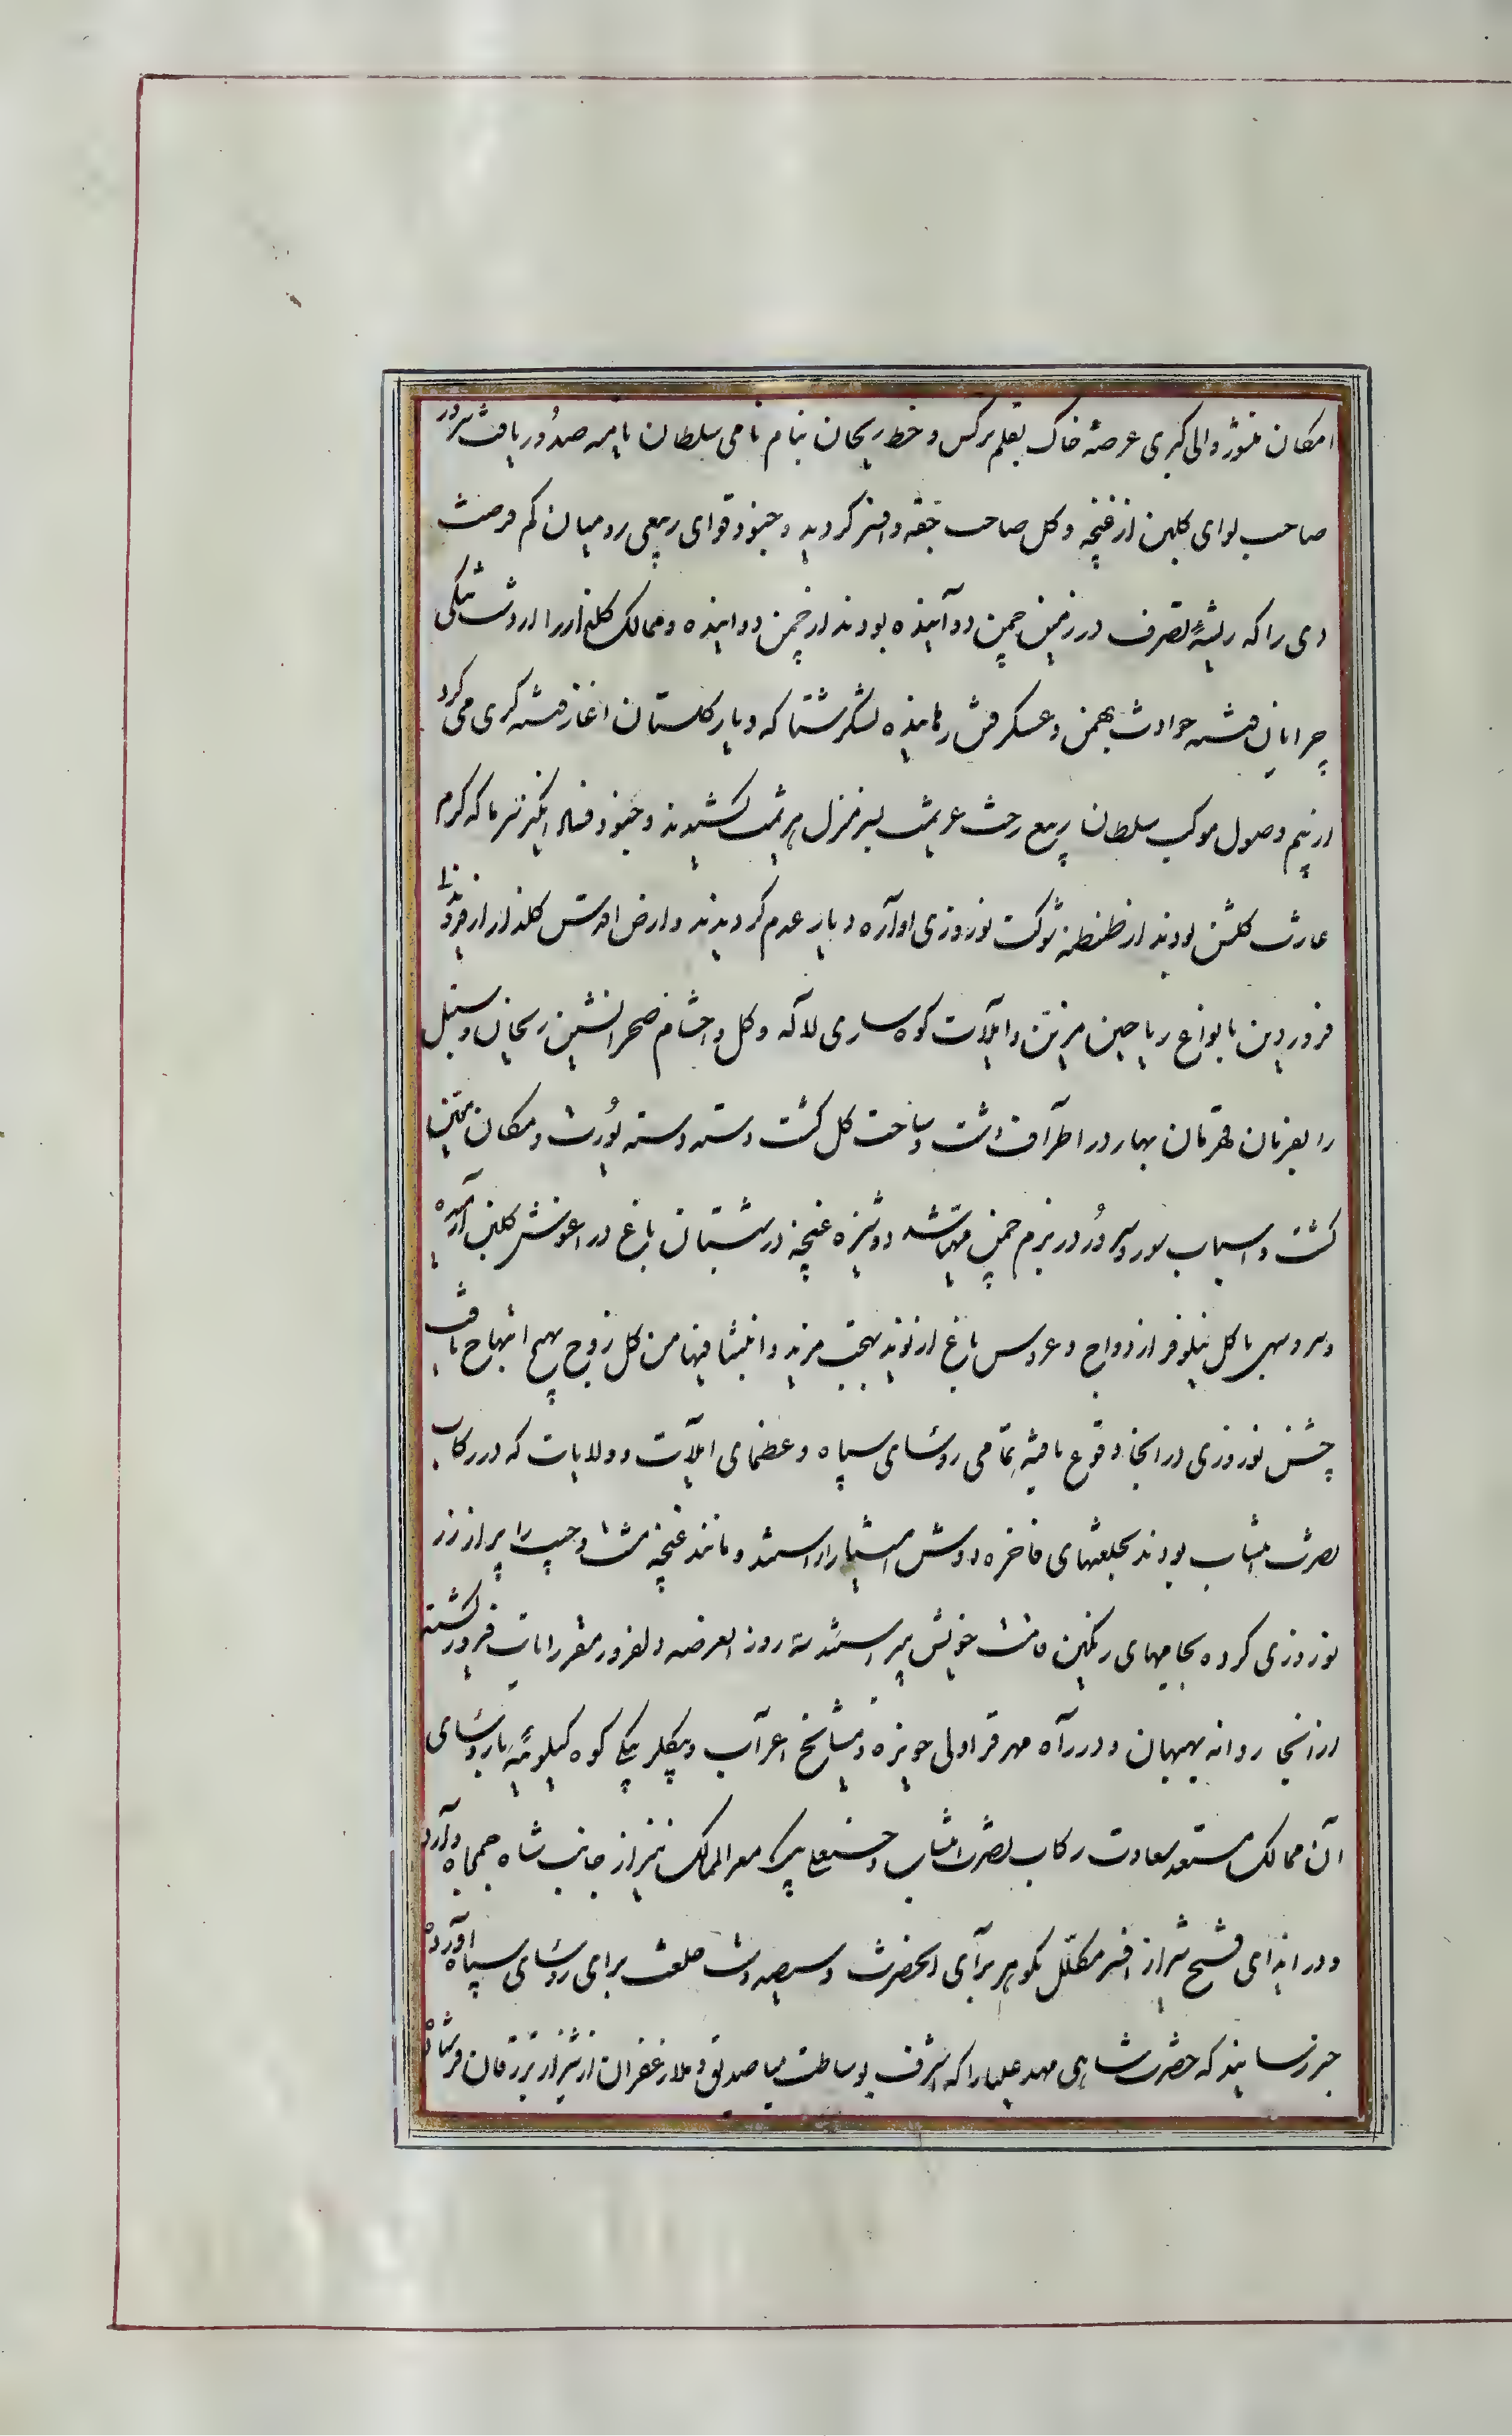 امکان منشور والی کبری عرصهٔ خاک بقلم نرکس و خط ریحان بنام نامی سلطان نامیه صدور یافت سرو در
صاحب لوای کلبن از غنچه و کل صاحب جقه و افسر کردید و جنود قوای ربیعی رومیان کم فرصت
دی را که ریشهٔ تصرف در زمین چمن دوآنیده بودند از چمن دوانیده و ممالک کلزار را از دست
چرایان فتنه حوادث بهمن و عسکر رهانیده لشکر شتا که دیار کلستان اغاز فتنه کری می کرد
از بیم وصول موکب سلطان ربیع رخت عزیمت بسر منزل هزیمت کشیدند و جنود فساد انکیز سرما که کرم
غارت کلشن بودند از طنطنه شوکت نوروزی اوآره دیار عدم کردیدند و ارض اقدس کلزار از
فروردین بانواع ریاحین مزین و ایلآت کوه ساری لاله و کل و احشام صحرانشین ریحان و سنبل
را بفرمان قهرمان بهار در اطرآف دشت و ساحت کل کشت دسته دسته یورت و مکان معین
کشت و اسباب سور و سرور در بزم چمن مهیا شد دوشیزه غنچه در شبستان باغ در اغوش کلبن آرمیده
و سرو سهی با کل نیلوفر ازدواج و عروس باغ از نوید بهجت مزید و انبتنا فیها من کل زوج بهیج ابتهاج یافت
جشن نوروزی در انجا وقوع یافته تمامی روسای سپاه و عظمای ایلآت و ولایات که در رکاب
نصرت انتساب بودند بخلعتهای فاخره دوش امتیاز اراستند و مانند غنچه مشت و جیب را پر از زر
نوروزی کرده بجامهای رنکین قامت خویش پیراستند سه روز العرضه دلفروز مقر رایات فیروز کشته
از انجا روانه بهبهان و در رآه مهر قرا والی حویزه و مشایخ اعرآب و بیکلر بیکی کوه کیلویه با روسای
آن ممالک مستعد سعادت رکاب نصرت انتساب و حسنعلی بیک معیر الممالک نیز از جانب شاه جمجاه وآرد
و در اثنای فتح شیراز افسر مکلل بکوهر برآی آنحضرت و سیصد دست خلعت برای روسای سپاه آورده
خبر رسانید که حضرت شاهی مهد علیا را که اشرف بوساطت میا صدیق و ملا زعفران از شیراز نزد قان فرستاده